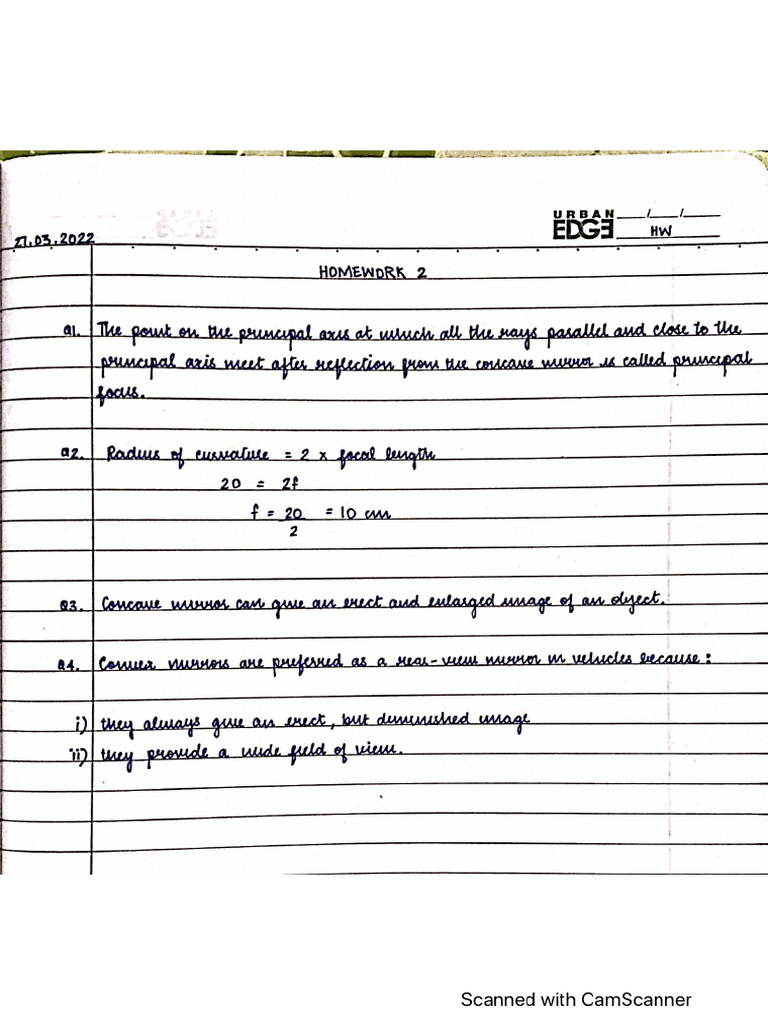 URBAN __/__/__
EDGE HW
27.03.2022
HOMEWORK 2
Q1. The point on the principal axis at which all the rays parallel and close to the
principal axis meet after reflection from the concave mirror is called principal
focus.
Q2. Radius of curvature = 2 x focal length
20 = 2f
f = 20 = 10 cm
2
Q3. Concave mirror can give an erect and enlarged image of an object.
Q4. Convex mirrors are preferred as a rear-view mirror in vehicles because :
i) they always give an erect, but diminished image
ii) they provide a wide field of view.
Scanned with CamScanner